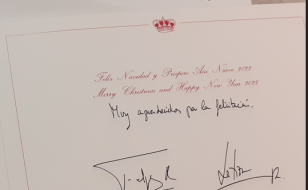 Feliz Navidad y Próspero Año Nuevo 2022
Merry Christmas and Happy New Year 2022
Muy agradecidos por la felicitación.
Felipe R
Letizia R.